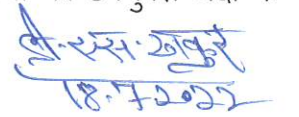 डी.एस.ठाकुरे
18.7.2022